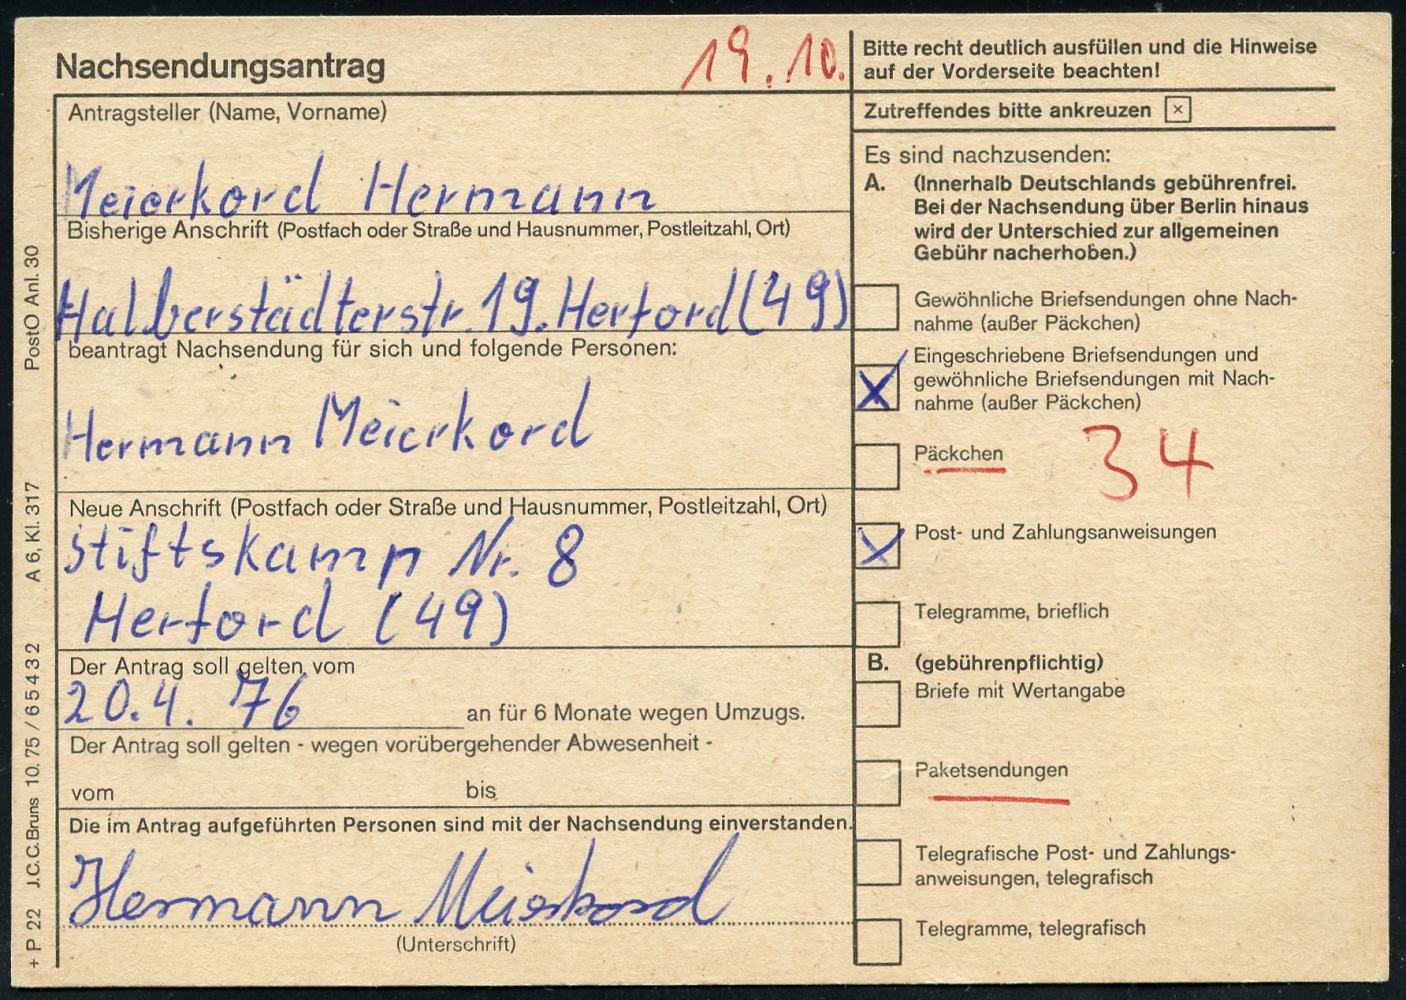 Nachsendungsantrag
19.10.
Antragsteller (Name, Vorname)
Meierkord Hermann
Bisherige Anschrift (Postfach oder Straße und Hausnummer, Postleitzahl, Ort)
Halberstädterstr. 19. Herford (49)
beantragt Nachsendung für sich und folgende Personen:
Hermann Meierkord
Neue Anschrift (Postfach oder Straße und Hausnummer, Postleitzahl, Ort)
Stiftskamp Nr. 8
Herford (49)
Der Antrag soll gelten vom
20.4. 76 an für 6 Monate wegen Umzugs.
Der Antrag soll gelten - wegen vorübergehender Abwesenheit -
vom bis
Die im Antrag aufgeführten Personen sind mit der Nachsendung einverstanden.
Hermann Meierkord
(Unterschrift)
Bitte recht deutlich ausfüllen und die Hinweise
auf der Vorderseite beachten!
Zutreffendes bitte ankreuzen x
Es sind nachzusenden:
A. (Innerhalb Deutschlands gebührenfrei.
Bei der Nachsendung über Berlin hinaus
wird der Unterschied zur allgemeinen
Gebühr nacherhoben.)
Gewöhnliche Briefsendungen ohne Nach-
nahme (außer Päckchen)
Eingeschriebene Briefsendungen und
gewöhnliche Briefsendungen mit Nach-
nahme (außer Päckchen)
Päckchen
34
Post- und Zahlungsanweisungen
Telegramme, brieflich
B. (gebührenpflichtig)
Briefe mit Wertangabe
Paketsendungen
Telegrafische Post- und Zahlungs-
anweisungen, telegrafisch
Telegramme, telegrafisch
+ P 22 J.C.C.Bruns 10.75 / 6 5 4 3 2 A 6, Kl. 317 PostO Anl. 30